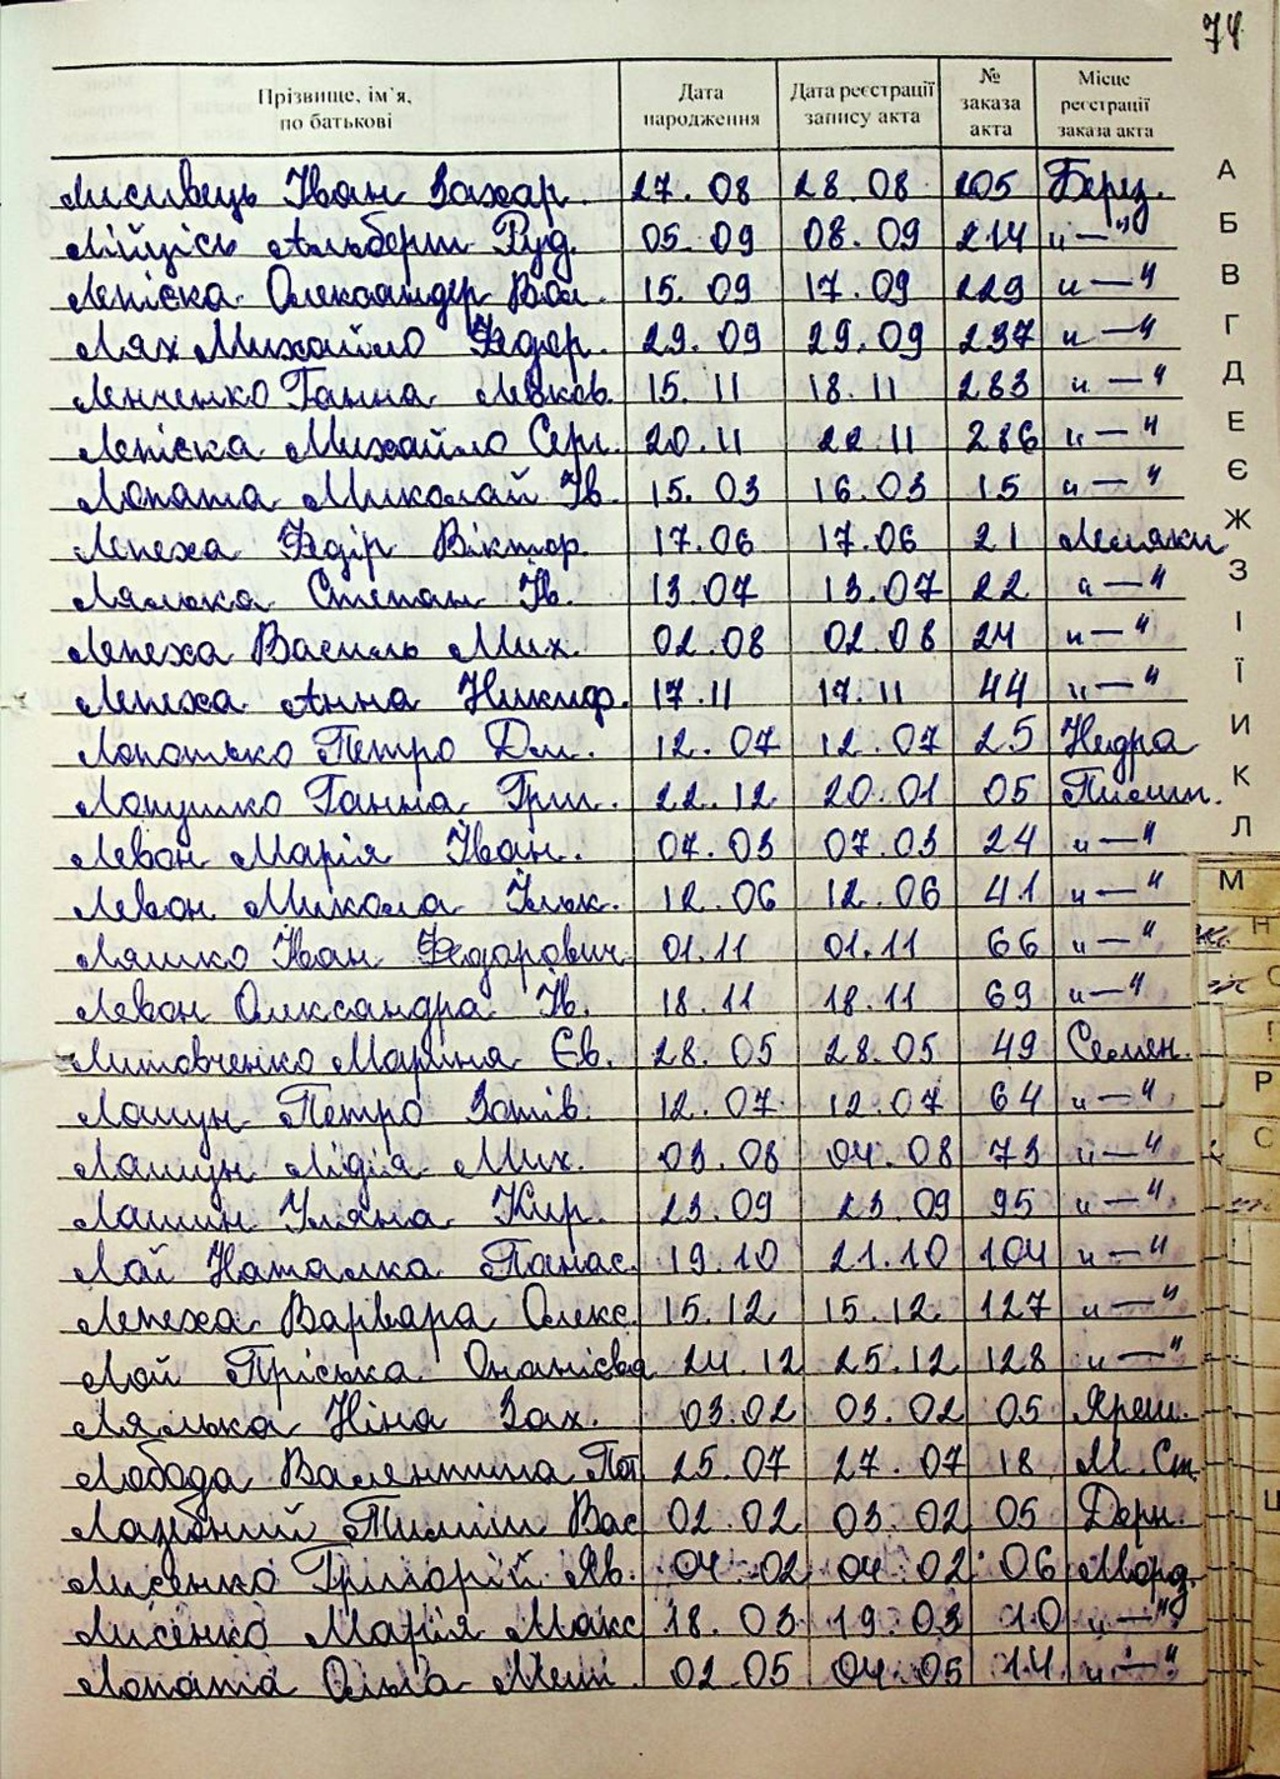 74
Прізвище, ім'я, по батькові | Дата народження | Дата реєстрації запису акта | № заказа акта | Місце реєстрації заказа акта
Лисивець Іван Захар. 27.08 28.08 205 Берез.
Лійцісь Альберт Руд. 05.09 08.09 214 "—"
Лепієка Олександер Вол. 15.09 17.09 229 "—"
Лях Михайло Федор. 29.09 29.09 237 "—"
Ленченко Ганна Левков. 15.11 18.11 283 "—"
Лепієка Михайло Сер. 20.11 22.11 286 "—"
Лопата Миколай Ів. 15.03 16.03 15 "—"
Лепеха Федір Віктор. 17.06 17.06 21 Лемяки
Лялька Степан Ів. 13.07 13.07 22 "—"
Лепеха Василь Мих. 02.08 02.08 24 "—"
Лепеха Анна Никиф. 17.11 17.11 44 "—"
Лопотько Петро Дм. 12.07 12.07 25 Недра
Лопушко Ганна Гри. 22.12 20.01 05 Пилип.
Левон Марія Іван. 07.03 07.03 24 "—"
Левон Микола Ільк. 12.06 12.06 41 "—"
Ляшко Іван Федорович 01.11 01.11 66 "—"
Левон Олександра Ів. 18.11 18.11 69 "—"
Литовченко Мариня Єв. 28.05 28.05 49 Семен.
Лашун Петро Зотів. 12.07 12.07 64 "—"
Лашун Лідія Мих. 03.08 04.08 73 "—"
Лашин Уляна Кир. 23.09 23.09 95 "—"
Лай Наталка Панас. 19.10 21.10 104 "—"
Лепеха Варвара Олекс. 15.12 15.12 127 "—"
Лой Пріська Онанієва 24.12 25.12 128 "—"
Лялька Ніна Зах. 03.02 03.02 05 Яреш.
Лобода Валентина 25.07 27.07 18 М. Ст.
Лазебний Тиміш Вас 02.02 03.02 05 Дерн.
Лисенко Григорій Як. 04.02 04.02 06 Морд.
Лисенко Марія Макс 18.03 19.03 10 "—"
Лопата Ольга 02.05 04.05 14 "—"
А
Б
В
Г
Д
Е
Є
Ж
З
І
Ї
И
К
Л
М
Н
О
П
Р
С